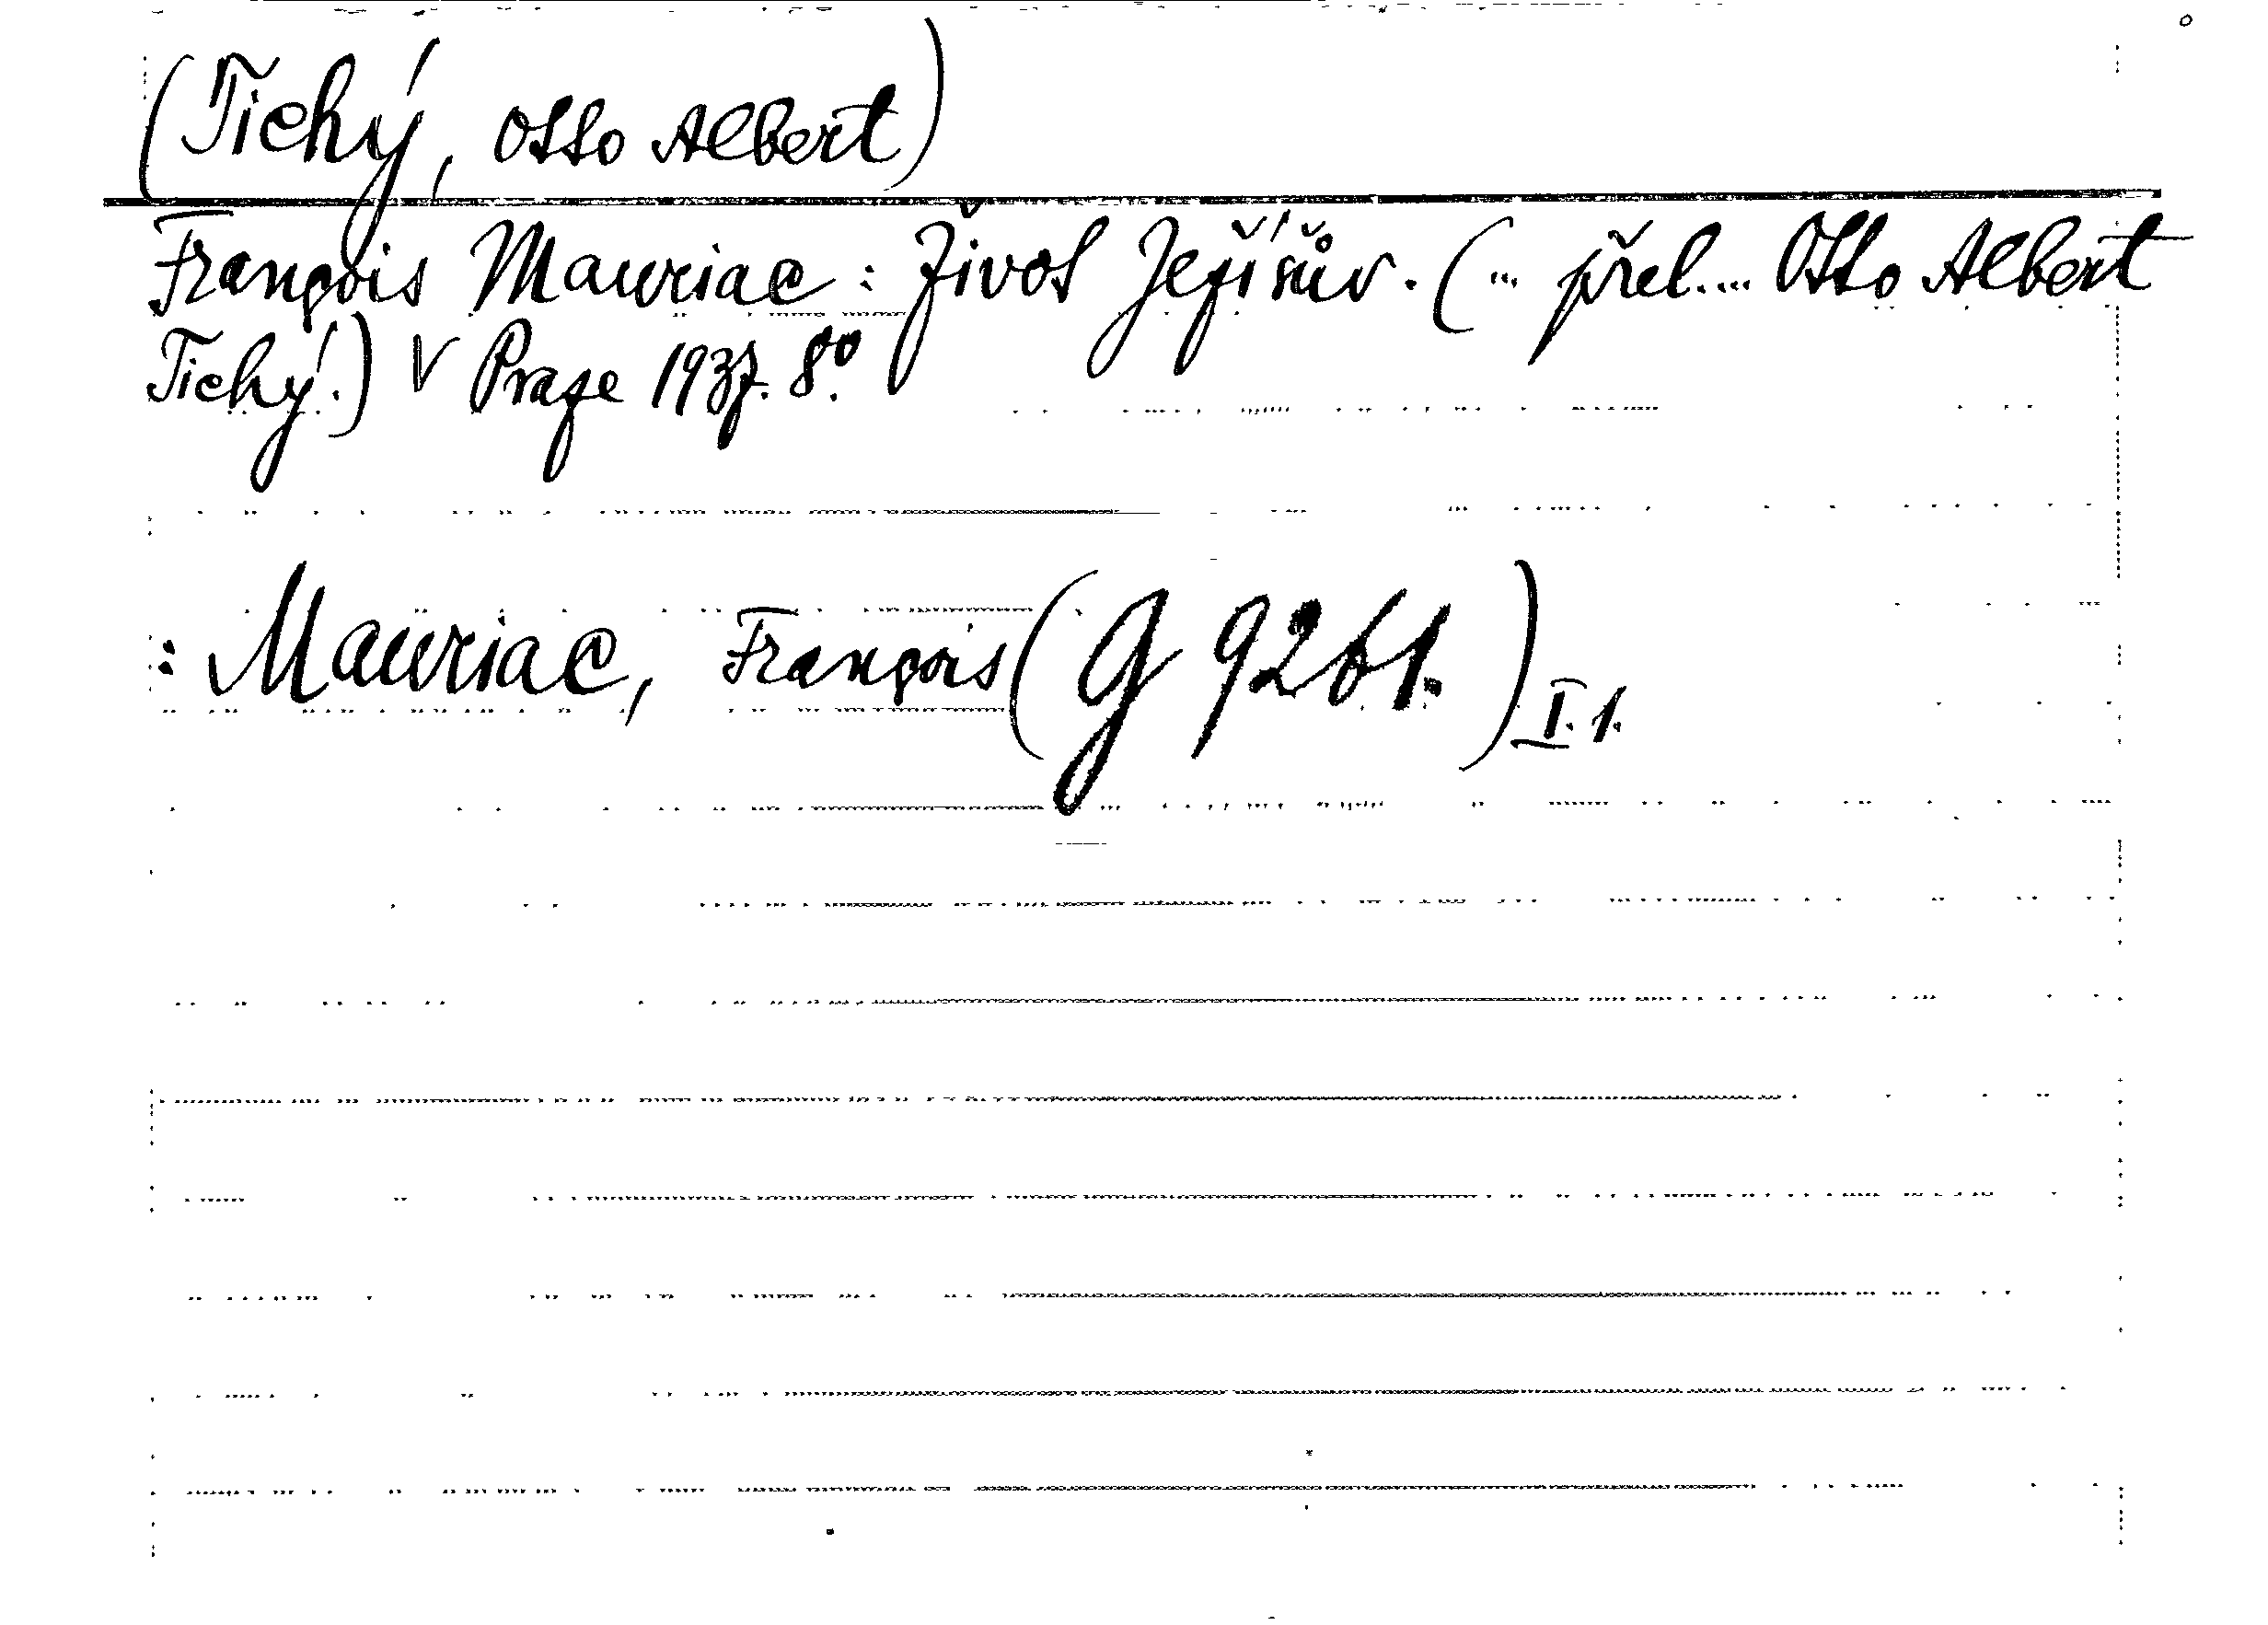 (Tichý, Otto Albert)
François Mauriac: Život Ježíšův. (... přel.... Otto Albert
Tichý.) V Praze 1937. 8°.
: Mauriac, François (G 9261.) I. 1.